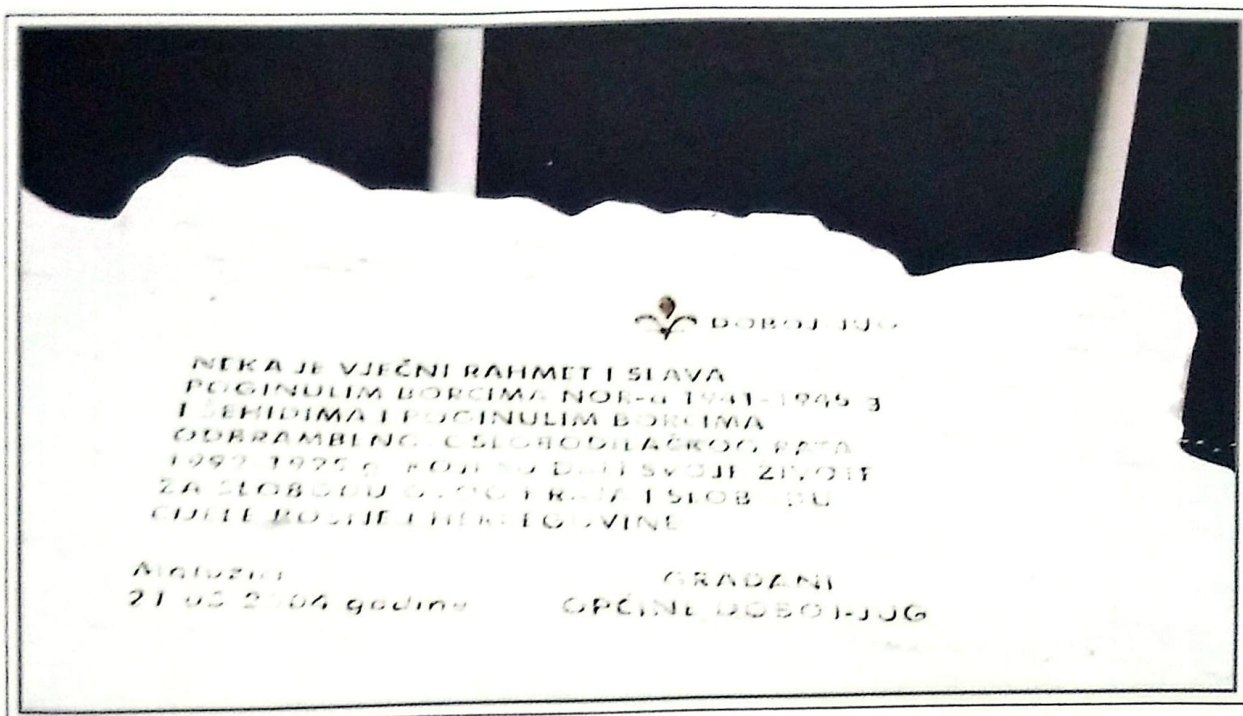 DOBOJ-JUG
NEKA JE VJEČNI RAHMET I SLAVA
POGINULIM BORCIMA NOR-a 1941-1945 g
I ŠEHIDIMA I POGINULIM BORCIMA
ODBRAMBENO OSLOBODILAČKOG RATA
1992-1995 g. KOJI SU DALI SVOJE ŽIVOTE
ZA SLOBODU OVOG KRAJA I SLOBODU
CIJELE BOSNE I HERCEGOVINE
GRAĐANI
21 2004 godine OPĆINE DOBOJ-JUG